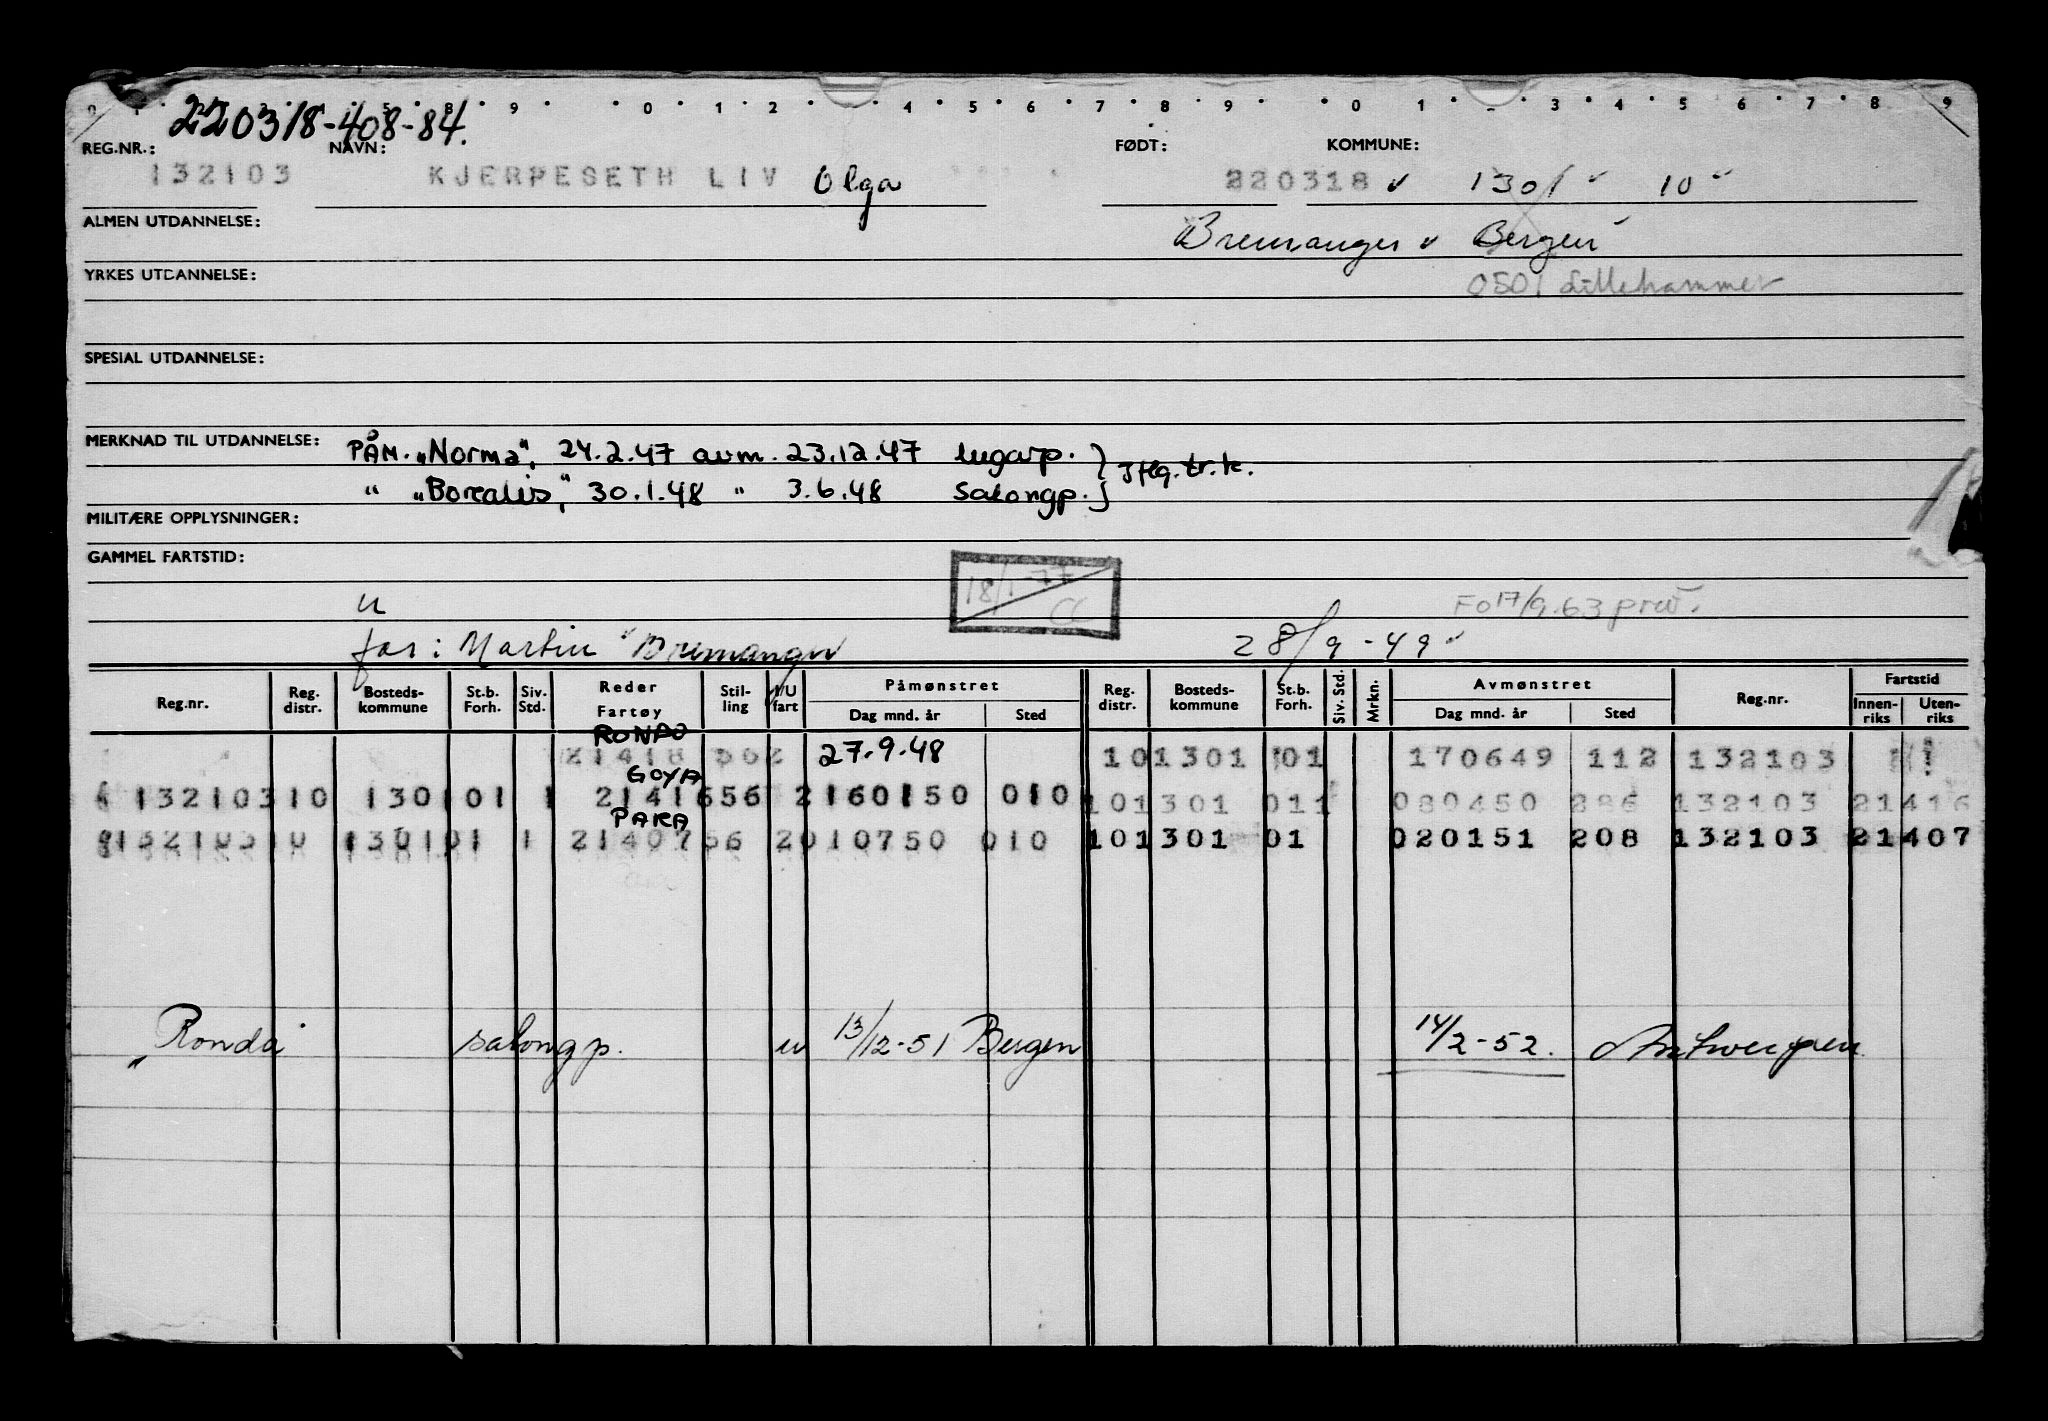 220318-408-84.
REG.NR.: NAVN: FØDT: KOMMUNE:
132103 KJERPESETH LIV Olga 220318 1301 10
ALMEN UTDANNELSE: Bremanger Bergen
YRKES UTDANNELSE: 0501 Lillehammer
SPESIAL UTDANNELSE:
MERKNAD TIL UTDANNELSE: PÅM. "Norma", 24.2.47 avm. 23.12.47 lugarp.
" "Borealis", 30.1.48 " 3.6.48 Salongp. Iflg. tr.k.
MILITÆRE OPPLYSNINGER:
GAMMEL FARTSTID:
18/1-77 CC
u Fo 17/9.63 prøv.
far: Martin Bremanger 28/9-49
Reg.nr. Reg. distr. Bosteds-kommune St.b. Forh. Siv. Std. Reder Fartøy Stil-ling I/U fart Påmønstret Dag mnd. år Sted Reg. distr. Bosteds-kommune St.b. Forh. Siv. Std. Mrkn. Avmønstret Dag mnd. år Sted Reg.nr. Fartstid Innen-riks Uten-riks
RONDO
21418 562 27.9.48 101301 01 170649 112 132103
GOYA
13210310 130101 1 2141656 2160150 010 101301 011 080450 286 132103 21416
PARA
13210310 130101 1 2140756 2010750 010 101301 01 020151 208 132103 21407
"Ronda salongp. u 13/12-51 Bergen 14/2-52. Antwerpen